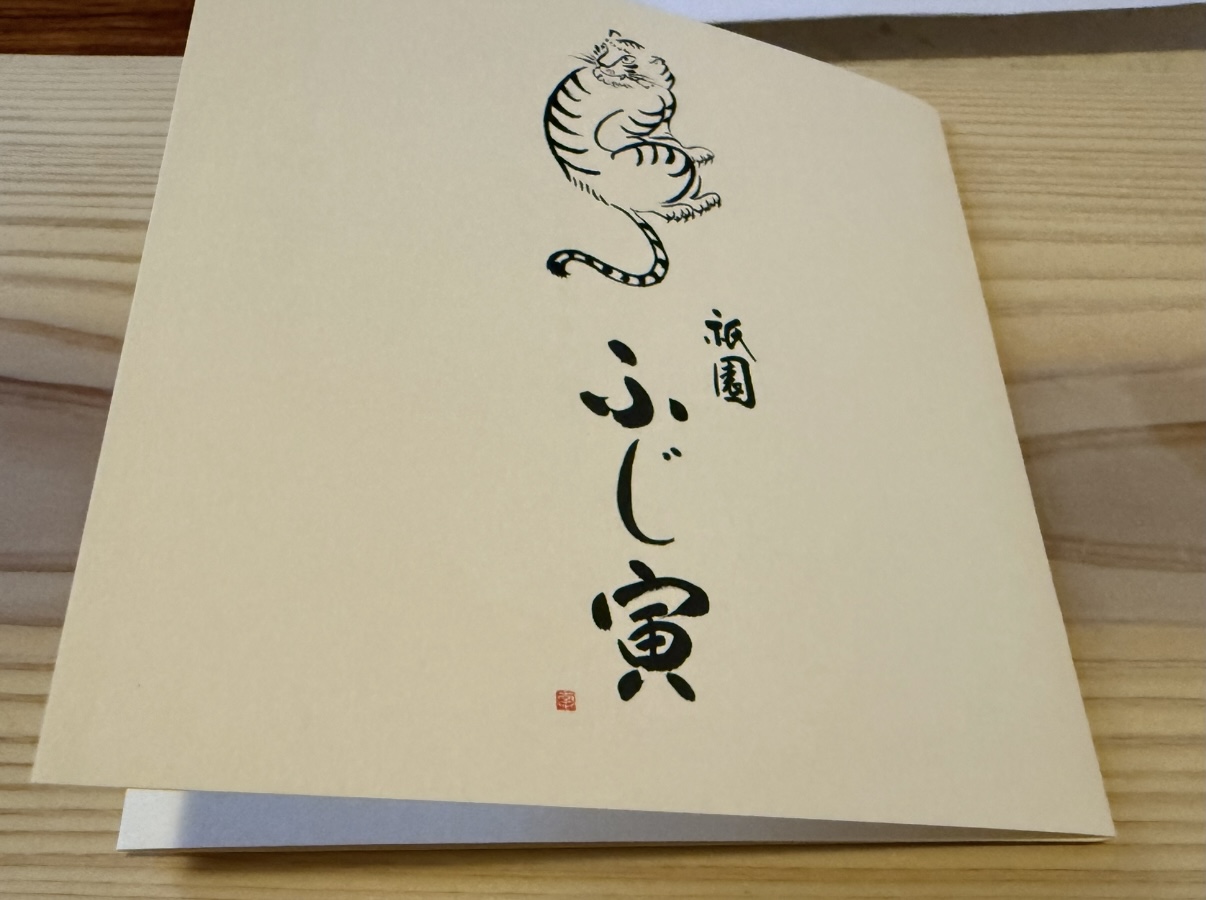 祇園
ふじ寅